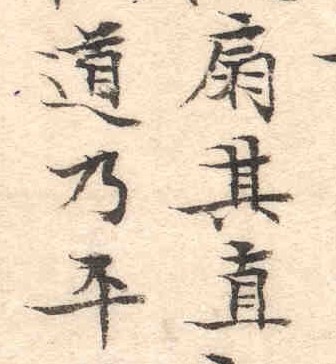 扇其直
道乃平